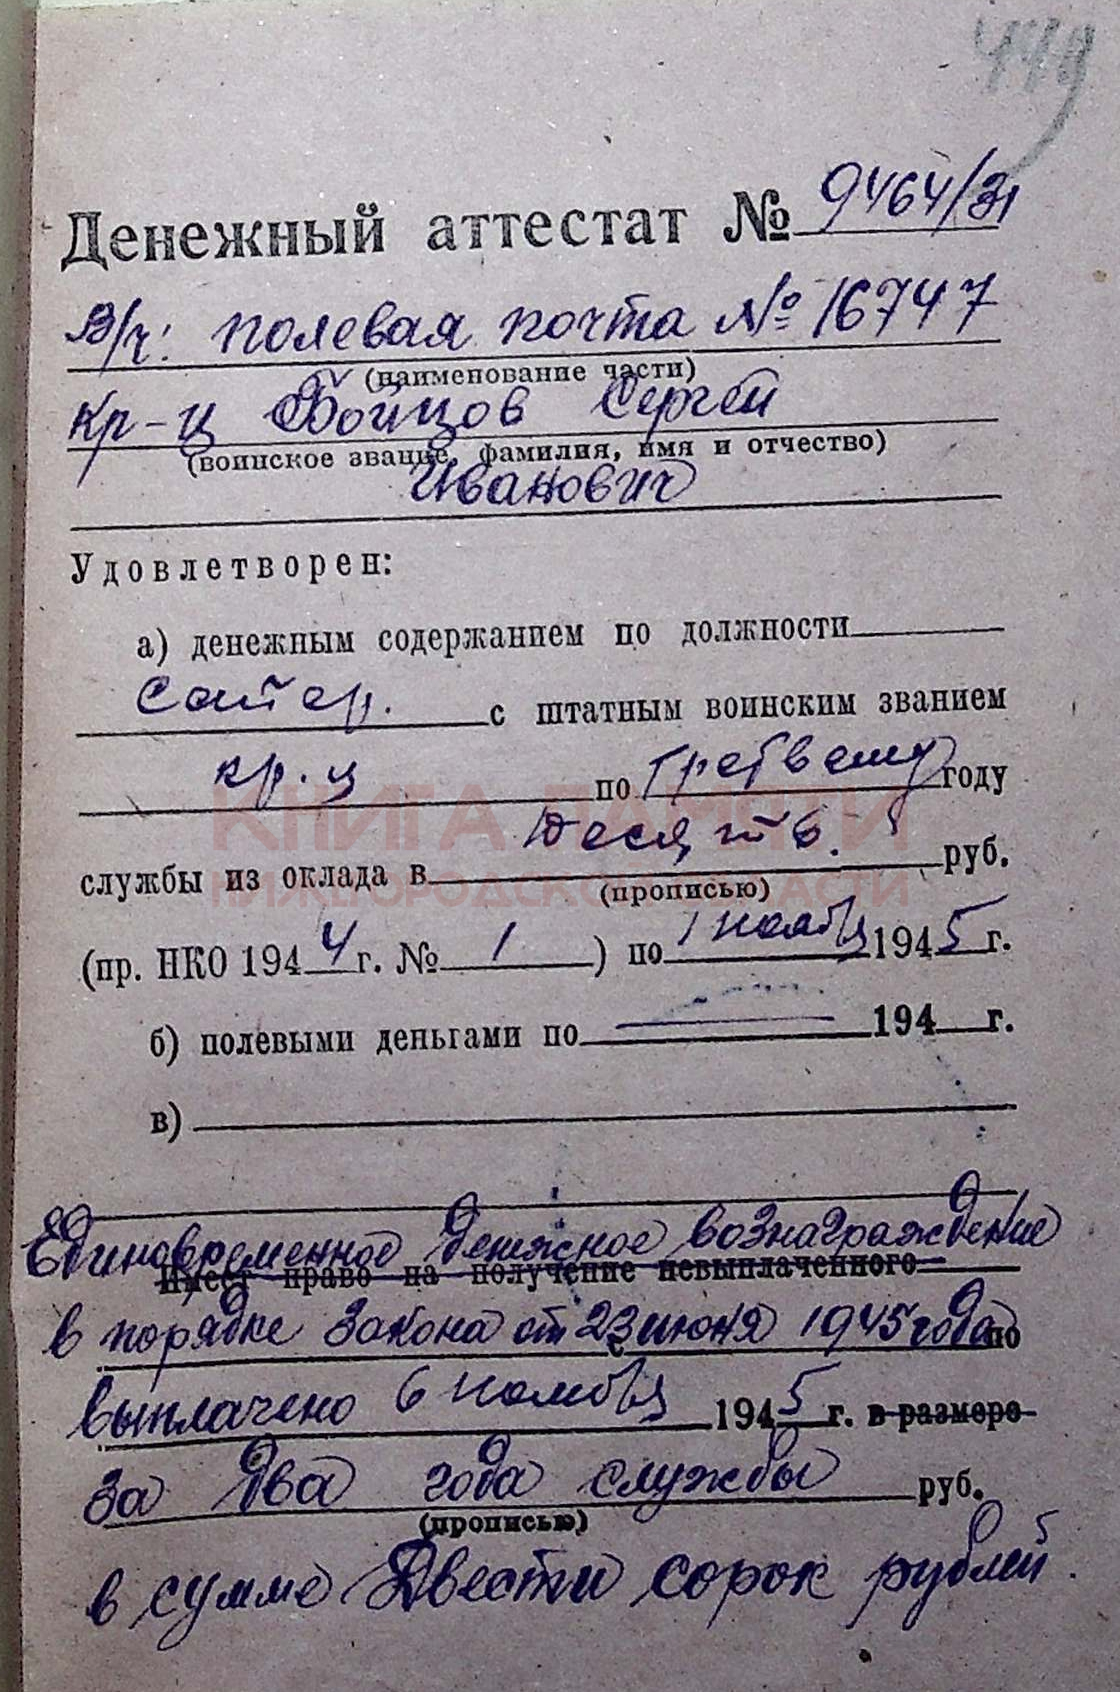 449
Денежный аттестат № 9464/31
В/ч: полевая почта № 16747
(наименование части)
Кр-ц Бойцов Сергей
(воинское звание, фамилия, имя и отчество)
Иванович
Удовлетворен:
а) денежным содержанием по должности
Сапер. с штатным воинским званием
кр-ц по третьему году
КНИГА ПАМЯТИ
Десять.
службы из оклада в руб.
НИЖЕГОРОДСКОЙ ОБЛАСТИ
(прописью)
(пр. НКО 1944 г. № 1 ) по 1 ноября 1945 г.
б) полевыми деньгами по 194 г.
в)
Единовременное денежное вознаграждение
Имеет право на получение невыплаченного
в порядке Закона от 23 июня 1945 года по
выплачено 6 ноября 1945 г. в размере
за два года службы руб.
(прописью)
в сумме Двести сорок рублей.